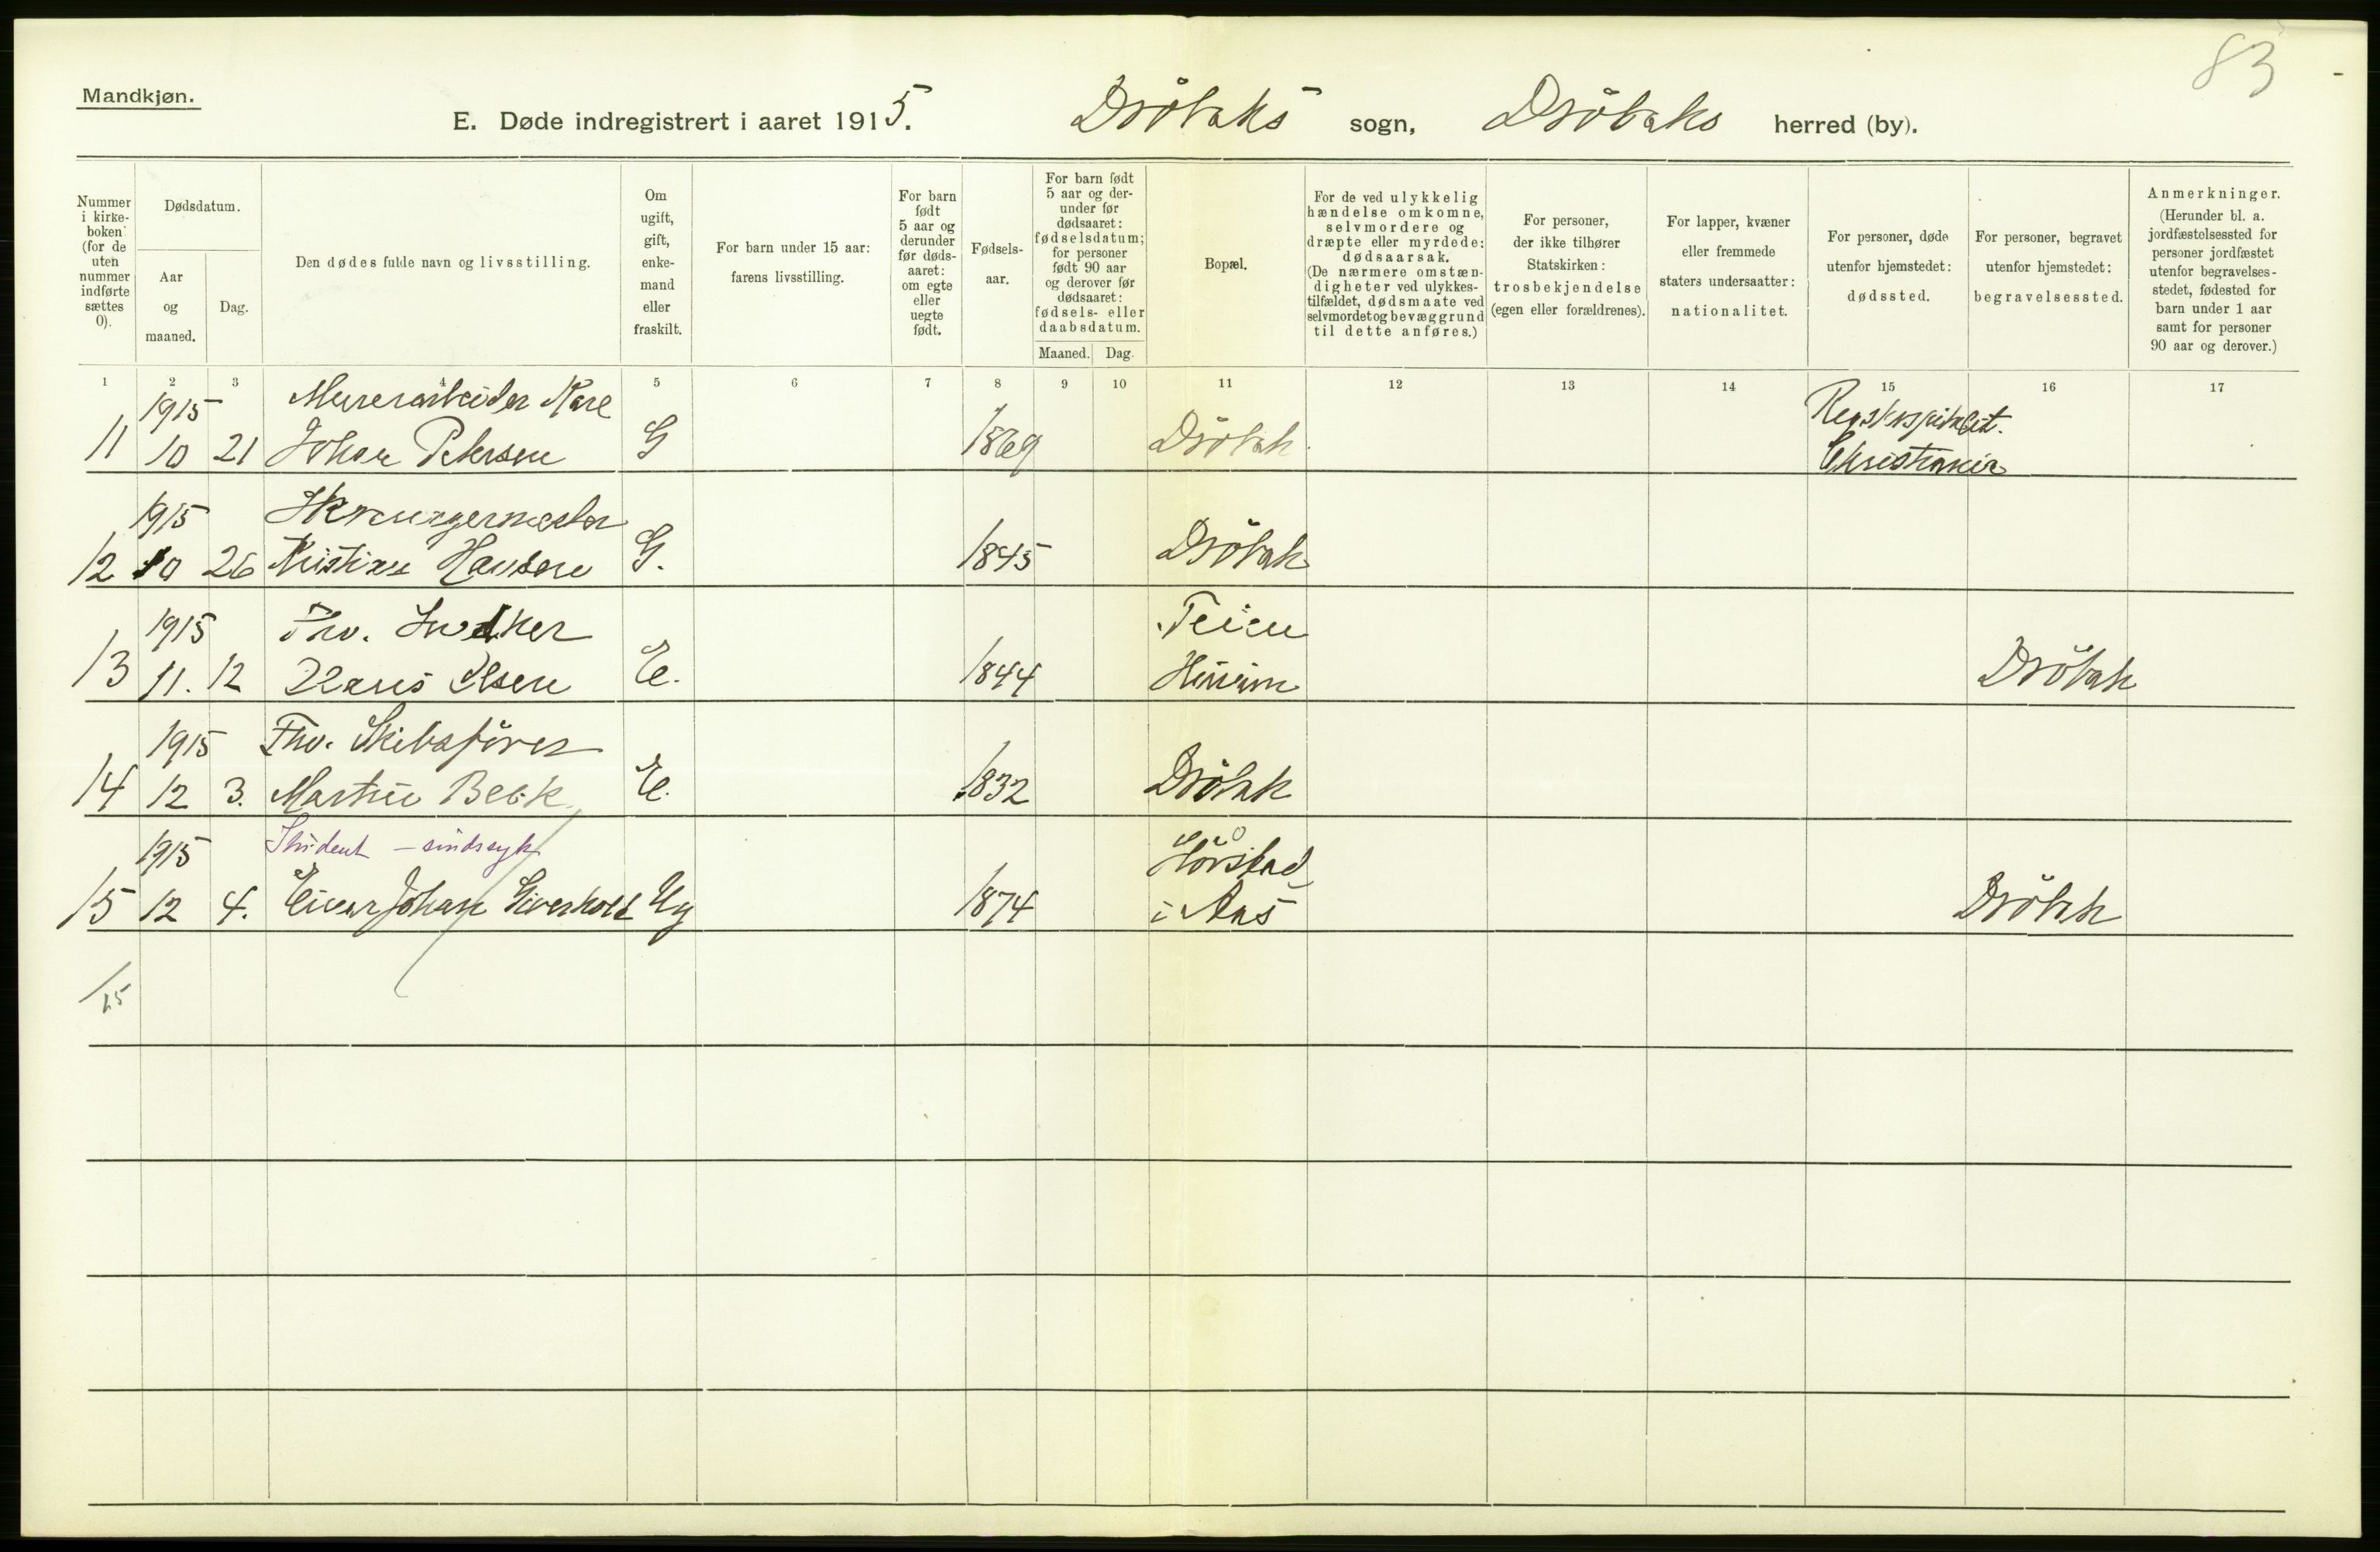 83
Mandkjøn.
E. Døde indregistrert i aaret 1915. Drøbaks sogn, Drøbaks herred (by).
Nummer i kirke-boken (for de uten nummer indførte sættes 0).
Dødsdatum.
Aar og maaned.
Dag.
Den dødes fulde navn og livsstilling.
Om ugift, gift, enke-mand eller fraskilt.
For barn under 15 aar: farens livsstilling.
For barn født 5 aar og derunder før døds-aaret: om egte eller uegte født.
Fødsels-aar.
For barn født 5 aar og der-under før dødsaaret: fødselsdatum; for personer født 90 aar og derover før dødsaaret: fødsels- eller daabsdatum.
Maaned. Dag.
Bopæl.
For de ved ulykkelig hændelse omkomne, selvmordere og dræpte eller myrdede: dødsaarsak. (De nærmere omstæn-digheter ved ulykkes-tilfældet, dødsmaate ved selvmordet og bevæggrund til dette anføres.)
For personer, der ikke tilhører Statskirken: trosbekjendelse (egen eller forældrenes).
For lapper, kvæner eller fremmede staters undersaatter: nationalitet.
For personer, døde utenfor hjemstedet: dødssted.
For personer, begravet utenfor hjemstedet: begravelsessted.
Anmerkninger. (Herunder bl. a. jordfæstelsessted for personer jordfæstet utenfor begravelses-stedet, fødested for barn under 1 aar samt for personer 90 aar og derover.)
1 2 3 4 5 6 7 8 9 10 11 12 13 14 15 16 17
1915 Murerarbeider Karl Rigshospitalet.
11 10 21 Johan Petersen G 1869 Drøbak Christiania
1915
12 10 26 Kristian Hansen G. 1845 Drøbak
1915 Fhv. Snedker Teien
13 11. 12 Hans Olsen E. 1844 Hurum Drøbak
1915 Fhv. Skibsfører
14 12 3. Martin Beck E. 1832 Drøbak
1915 Student – sindssyk
15 12 4. Einar Johan Siverholt Ug 1874 i Aas Drøbak
15